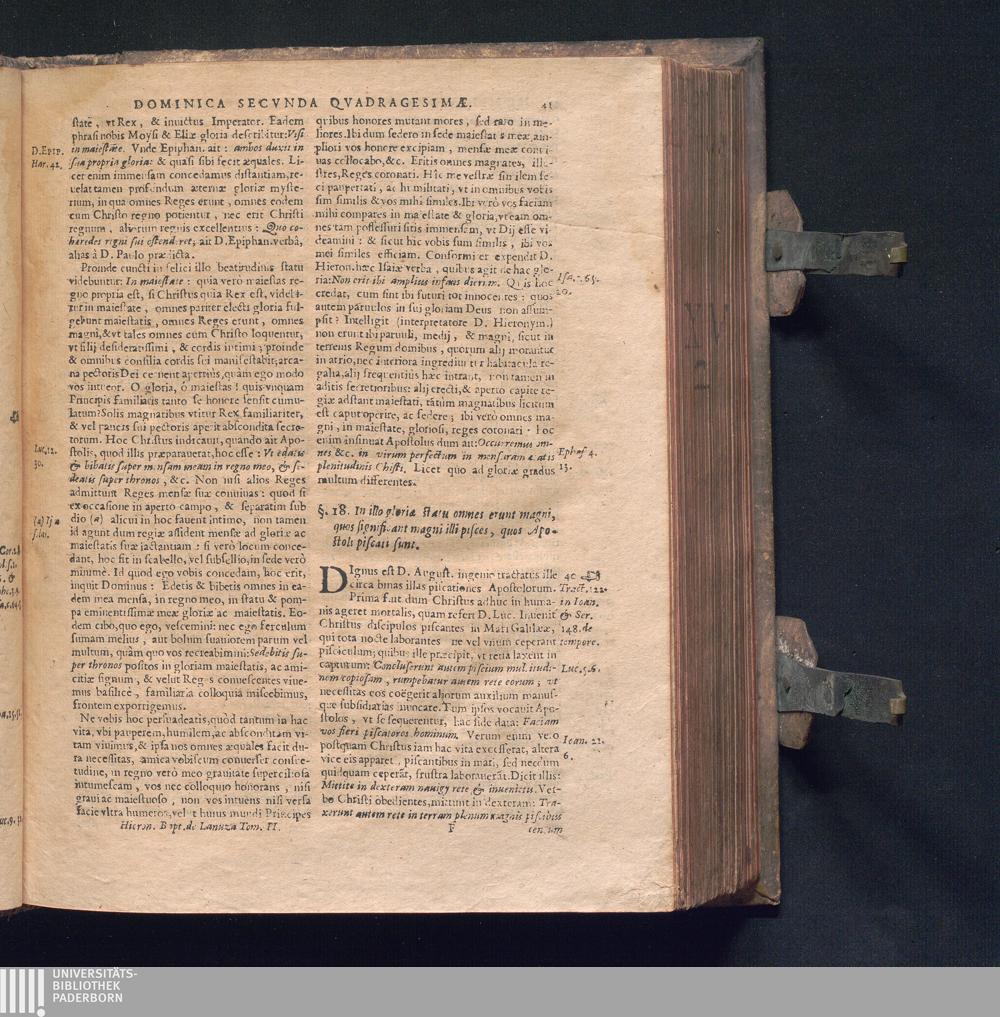 DOMINICA SECVNDA QVADRAGESIMÆ. 41
state, vt Rex, & inuictus Imperator. Eadem
phrasi nobis Moysi & Eliæ gloria describitur: Visi
in maiestate. Vnde Epiphan. ait: ambos duxit in
sua propria gloria: & quasi sibi fecit æquales. Li-
cet enim immensam concedamus distantiam, re-
uelat tamen profundum æternæ gloriæ myste-
rium, in qua omnes Reges erunt, omnes eodem
cum Christo regno potientur, nec erit Christi
regnum, aliorum regnis excellentius: Quo co-
heredes regni sui ostenderet; ait D. Epiphan. verba,
alias à D. Paulo prædicta.
Proinde cuncti in felici illo beatitudinis statu
videbuntur: In maiestate: quia vero maiestas re-
gno propria est, si Christus quia Rex est, videbi-
tur in maiestate, omnes pariter electi gloria ful-
gebunt maiestatis, omnes Reges erunt, omnes
magni, & vt tales omnes cum Christo loquentur,
vt filij desideratissimi, & cordis intimi; proinde
& omnibus consilia cordis sui manifestabit; arca-
na pectoris Dei cernent apertius, quàm ego modo
vos intueor. O gloria, ô maiestas! quis vnquam
Principis familiaris tanto se honore sensit cumu-
latum? Solis magnatibus vtitur Rex familiariter,
& vel paucis sui pectoris aperit abscondita secre-
torum. Hoc Christus indicauit, quando ait Apo-
stolis, quod illis præparauerat, hoc esse: Vt edatis
& bibatis super mensam meam in regno meo, & se-
deatis super thronos, &c. Non nisi alios Reges
admittunt Reges mensæ suæ conuiuas: quod si
ex occasione in aperto campo, & separatim sub
dio (a) alicui in hoc fauent intimo, non tamen
id agunt dum regiæ assident mensæ ad gloriæ ac
maiestatis suæ iactantiam: si verò locum conce-
dant, hoc fit in scabello, vel subsellio, in sede verò
minimè. Id quod ego vobis concedam, hoc erit,
inquit Dominus: Edetis & bibetis omnes in ea-
dem mea mensa, in regno meo, in statu & pom-
pa eminentissimæ meæ gloriæ ac maiestatis. Eo-
dem cibo, quo ego, vescemini: nec ego ferculum
sumam melius, aut bolum suauiorem parum vel
multum, quàm quo vos recreabimini: Sedebitis su-
per thronos positos in gloriam maiestatis, ac ami-
citiæ signum, & velut Reges conuescentes viue-
mus basilicè, familiaria colloquia miscebimus,
frontem exporrigemus.
Ne vobis hoc persuadeatis, quòd tantum in hac
vita, vbi pauperem, humilem, ac absconditam vi-
tam viuimus, & ipsa nos omnes æquales facit du-
ra necessitas, amicè vobiscum conuerser consue-
tudine, in regno verò meo grauitate superciliosa
intumescam, vos nec colloquio honorans, nisi
graui ac maiestuoso, non vos intuens nisi versa
facie vltra humeros, velut huius mundi Principes
Hieron. Bapt. de Lanuza Tom. II.
D. Epip.
Hær. 42.
Luc. 22.
30.
quibus honores mutant mores, sed raro in me-
liores. Ibi dum sedero in sede maiestatis meæ, am-
pliori vos honore excipiam, mensæ meæ conui-
uas collocabo, &c. Eritis omnes magnates, illu-
stres, Reges coronati. Hîc me vestræ similem fe-
ci paupertati, ac humilitati, vt in omnibus vobis
sim similis & vos mihi similes. Ibi verò vos faciam
mihi compares in maiestate & gloria, vt eam om-
nes tam possessuri sitis immensam, vt Dij esse vi-
deamini: & sicut hic vobis sum similis, ibi vos
mei similes efficiam. Conformiter expendit D.
Hieron. hæc Isaiæ verba, quibus agit de hac glo-
ria: Non erit ibi amplius infans dierum. Quis hoc
credat, cum sint ibi futuri tot innocentes: quos
autem paruulos in sui gloriam Deus non assum-
psit? Intelligit (interpretatore D. Hieronym.)
non erunt ibi paruuli, medij, & magni, sicut in
terrenis Regum domibus, quorum alij morantur
in atrio, nec interiora ingrediuntur habitacula re-
galia, alij frequentius hæc intrant, non tamen in
aditis secretioribus: alij erecti, & aperto capite re-
giæ adstant maiestati, tātùm magnatibus licitum
est caput operire, ac sedere; ibi verò omnes ma-
gni, in maiestate, gloriosi, reges coronati: hoc
enim insinuat Apostolus dum ait: Occurremus om-
nes &c. in virum perfectum in mensuram ætatis
plenitudinis Christi. Licet quo ad gloriæ gradus
multum differentes.
Isa. 65.
20.
Ephes. 4.
13.
§. 18. In illo gloriæ statu omnes erunt magni,
quos significant magni illi pisces, quos Apo-
stoli piscati sunt.
DIgnus est D. August. ingenio tractatus ille
circa binas illas piscationes Apostolorum.
Prima fuit dum Christus adhuc in huma-
nis ageret mortalis, quam refert D. Luc. Inuenit
Christus discipulos piscantes in Mari Galilææ,
qui tota nocte laborantes ne vel vnum ceperant
pisciculum; quibus ille præcipit, vt retia laxent in
capturam: Concluserunt autem piscium multitudi-
nem copiosam, rumpebatur autem rete eorum; vt
necessitas eos coëgerit aliorum auxilium manus-
que subsidiarias inuocare. Tum ipsos vocauit Apo-
stolos, vt se sequerentur, hac fide data: Faciam
vos fieri piscatores hominum. Verum enim vero
postquam Christus iam hac vita excesserat, altera
vice eis apparet, piscantibus in mari, sed necdum
quidquam ceperāt, frustra laborauerāt. Dicit illis:
Mittite in dexteram nauigij rete & inuenietis. Ver-
bo Christi obedientes, mittunt in dexteram: Tra-
xerunt autem rete in terram plenum magnis piscibus
F centum
40
Tract. 122.
in Ioan.
& Ser.
148. de
tempore.
Luc. 5. 6.
Ioan. 21.
6.
UNIVERSITÄTS-
BIBLIOTHEK
PADERBORN